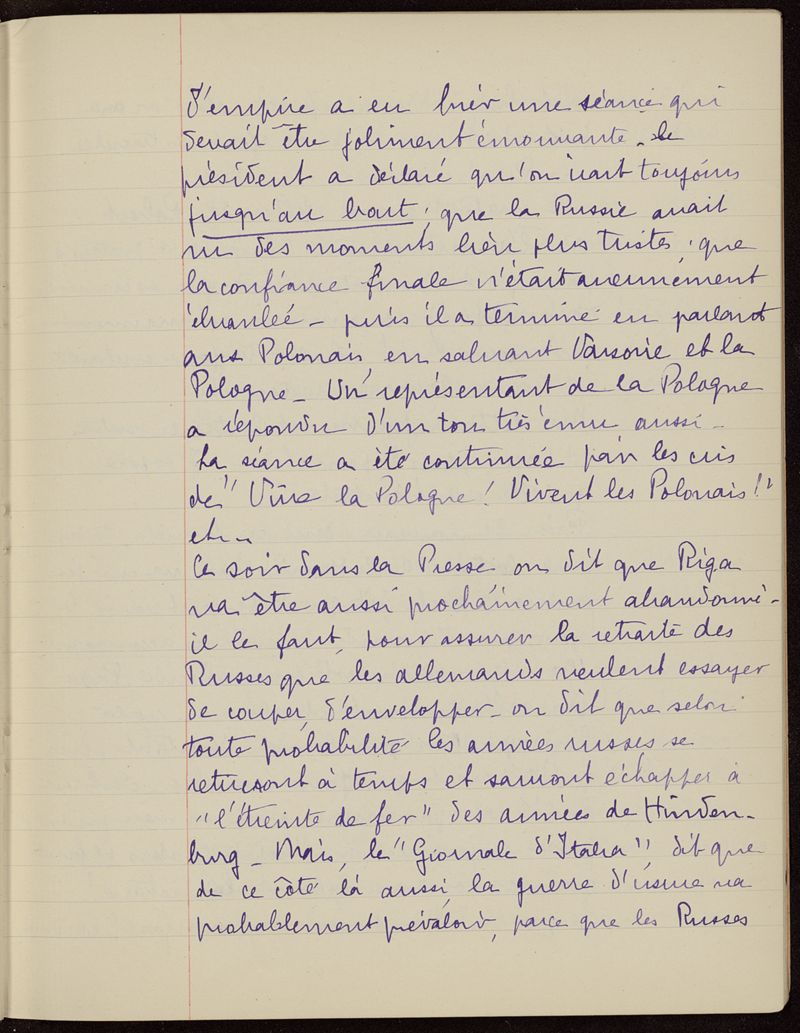 d'empire a eu hier une séance qui
devait être joliment émouvante. le
président a déclaré qu'on irait toujours
jusqu'au bout ; que la Russie avait
vu des moments bien plus tristes ; que
la confiance finale n'était aucunement
ébranlée – puis il a terminé en parlant
aux Polonais, en saluant Varsovie et la
Pologne – Un représentant de la Pologne
a répondu d'un ton très ému aussi –
La séance a été continuée par les cris
de "Vive la Pologne ! Vivent les Polonais !"
etc..
Ce soir dans la Presse on dit que Riga
va être aussi prochainement abandonné –
il le faut, pour assurer la retraite des
Russes que les allemands veulent essayer
de couper, d'envelopper – on dit que selon
toute probabilité les armées russes se
retireront à temps et sauront échapper à
"l'étreinte de fer" des armées de Hinden-
burg – Mais, le "Giornale d'Italia", dit que
de ce côté là aussi, la guerre d'usure va
probablement prévaloir, parce que les Russes